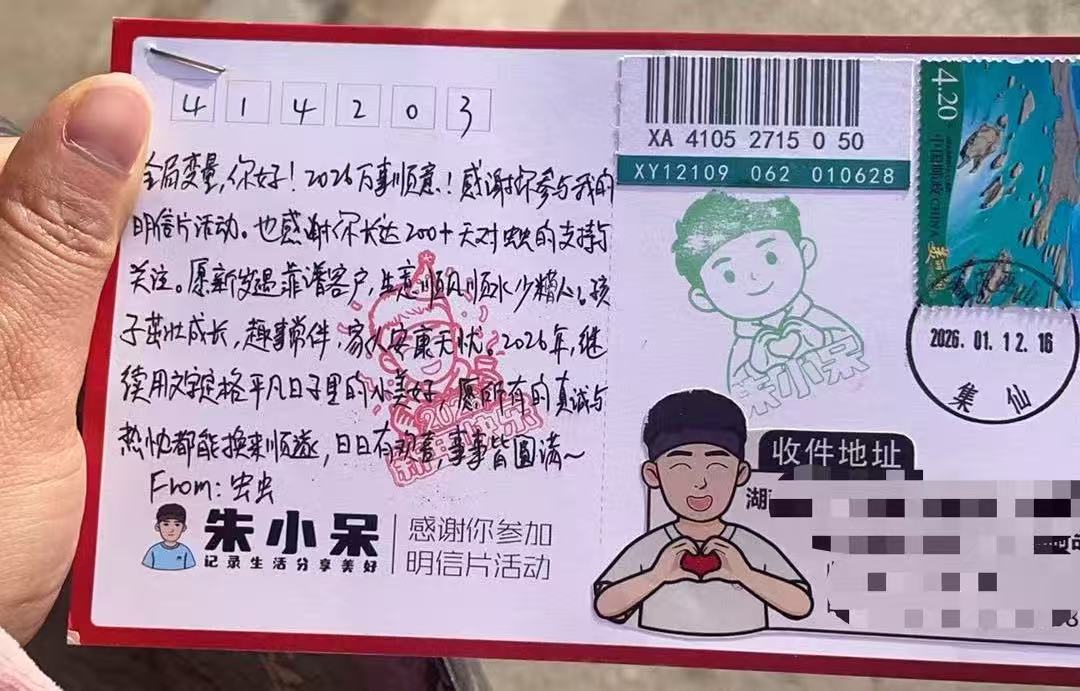 414203
全局变量,你好!2026万事顺意!感谢你参与我的
明信片活动。也感谢你长达200+天对虫虫的支持与
关注。愿新岁遇靠谱客户,生意顺风顺水少糟心。孩
子茁壮成长,趣事常伴,家人安康无忧。2026年,继
续用文字定格平凡日子里的小美好,愿所有的真诚与
热忱都能换来顺遂,日日有欢喜,事事皆圆满~
From:虫虫
朱小呆
记录生活分享美好
感谢你参加
明信片活动
XA 4105 2715 0 50
XY12109 062 010628
4.20
中国邮政 CHINA
朱小呆
2026.01.12.16
集仙
收件地址
湖